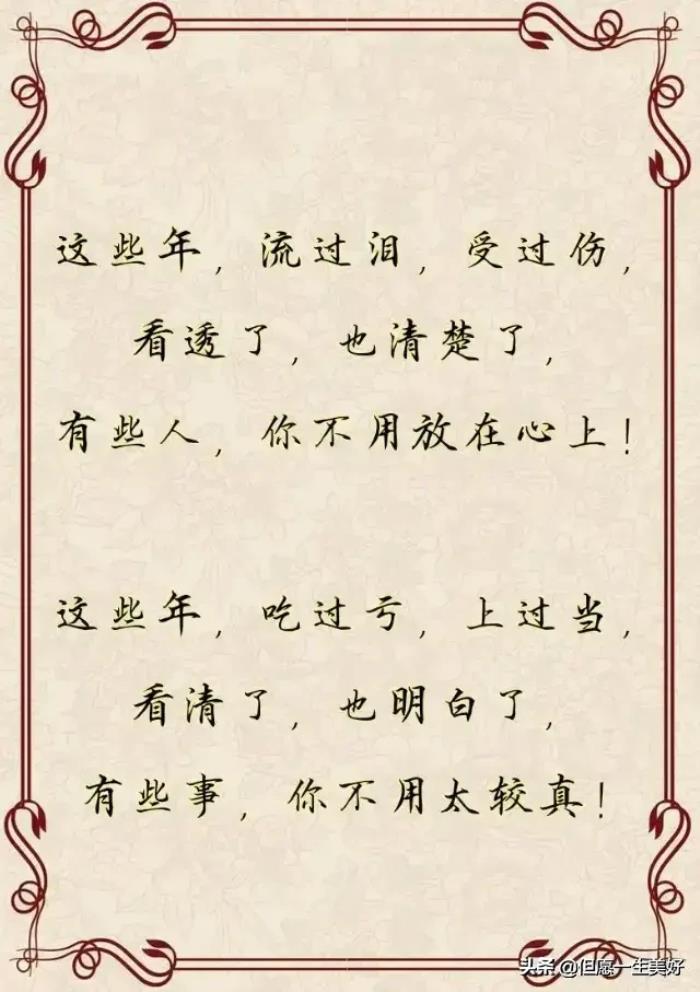 这些年，流过泪，受过伤，
看透了，也清楚了，
有些人，你不用放在心上！
这些年，吃过亏，上过当，
看清了，也明白了，
有些事，你不用太较真！
头条 @但愿一生美好